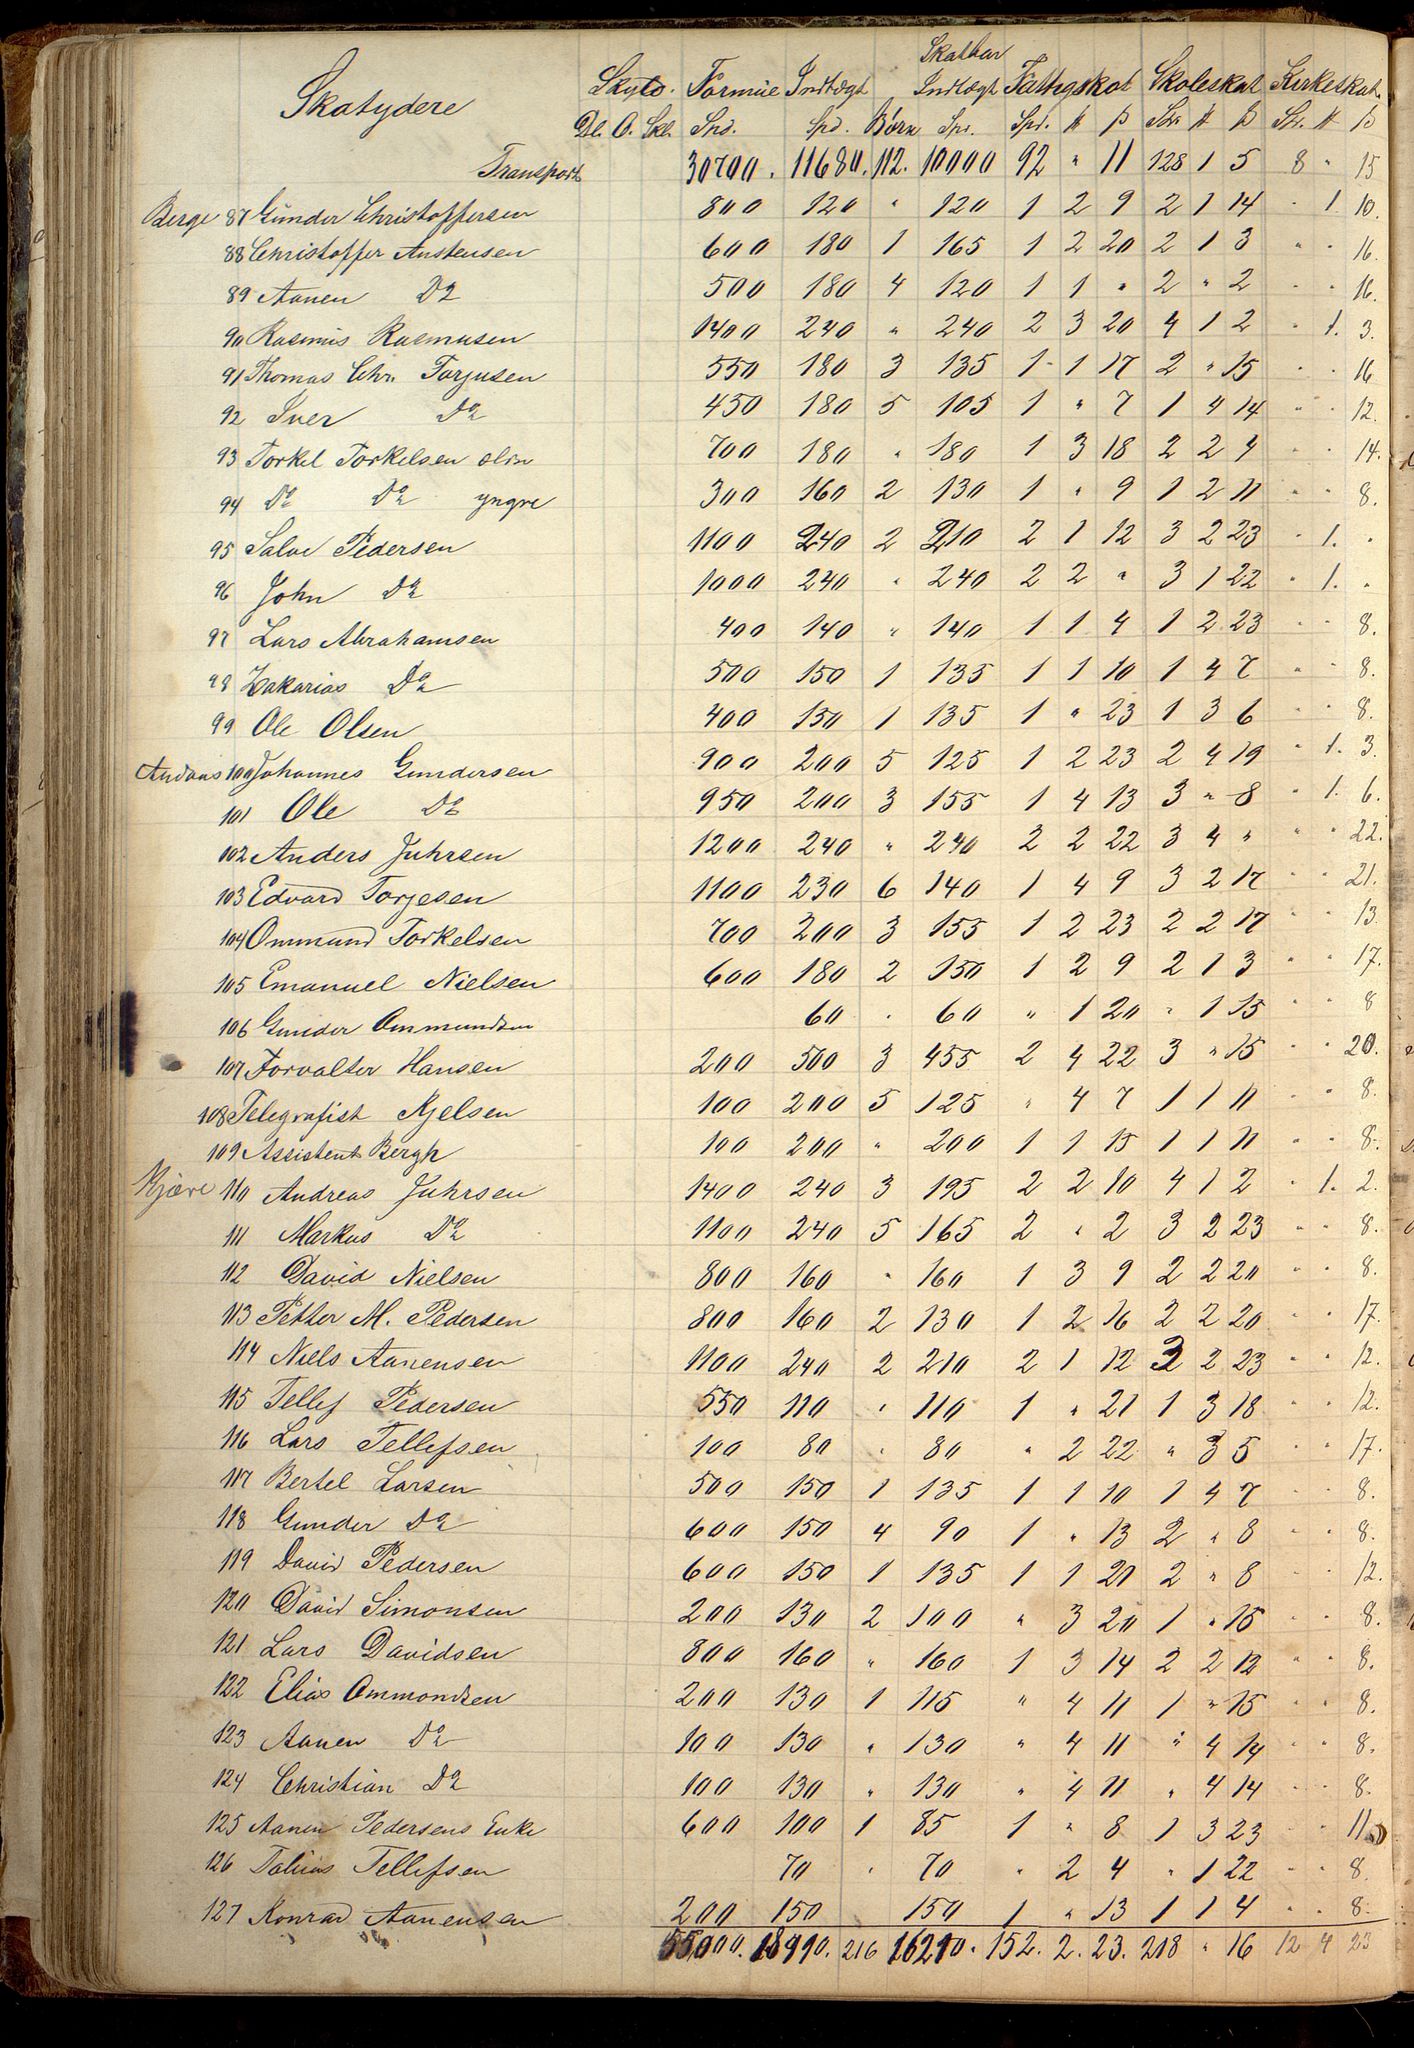 Skatydere Skyld. Formue Indtægt Børn Skatbar Indtægt Fattigskat Skoleskat Kirkeskat.
Dl. O. Skl. Spd. Spd. Spd. Spd. # ß Spd. # ß Spd. # ß
Transport 30700. 11680. 112. 10000 92 " 11 128 1 5 8 " 15
Berge 87 Gunder Christoffersen 800 120 " 120 1 2 9 2 1 14 " 1. 10.
88 Christoffer Anstensen 600 180 1 165 1 2 20 2 1 3 " " 16.
89 Aanen Do 500 180 4 120 1 1 " 2 " 2 " " 16.
90 Rasmus Rasmusen 1400 240 " 240 2 3 20 4 1 2 " 1. 3.
91 Thomas Chr. Torjusen 550 180 3 135 1 1 17 2 " 15 " " 16
92 Iver Do 450 180 5 105 1 " 7 1 4 14 " " 12.
93 Torkel Torkelsen eldre 700 180 " 180 1 3 18 2 2 4 " " 14.
94 Do Do yngre 300 160 2 130 1 " 9 1 2 11 " " 8.
95 Salve Pedersen 1100 240 2 210 2 1 12 3 2 23 " 1. "
96 John Do 1000 240 " 240 2 2 " 3 1 22 " 1. "
97 Lars Abrahamsen 400 140 " 140 1 1 4 1 2 23 " " 8.
98 Zakarias Do 500 150 1 135 1 1 10 1 4 7 " " 8.
99 Ole Olsen 400 150 1 135 1 " 23 1 3 6 " " 8.
100 Johannes Gundersen 900 200 5 125 1 2 23 2 4 19 " 1. 3.
101 Ole Do 950 200 3 155 1 4 13 3 " 8 " 1. 6.
102 Anders Juhrsen 1200 240 " 240 2 2 22 3 4 " " " 22.
103 Edvard Torjesen 1100 230 6 140 1 4 9 3 2 17 " " 21.
104 Ommund Torkelsen 700 200 3 155 1 2 23 2 2 17 " " 13
105 Emanuel Nielsen 600 180 2 150 1 2 9 2 1 3 " " 17.
106 Gunder Ommundsen 60 " 60 " 1 20 " 1 15 " " 8
107 Forvalter Hansen 200 500 3 455 2 4 22 3 " 15 " " 20.
108 Telegrafist Kjelsen 100 200 5 125 " 4 7 1 1 11 " " 8.
109 Assistent Bergh 100 200 " 200 1 1 15 1 1 11 " " 8.
Kjære 110 Andreas Juhrsen 1400 240 3 195 2 2 10 4 1 2 " 1. 2.
111 Markus Do 1100 240 5 165 2 " 2 3 2 23 " " 8.
112 David Nielsen 800 160 " 160 1 3 9 2 2 20 " " 8.
113 Petter M. Pedersen 800 160 2 130 1 2 16 2 2 20 " " 17.
114 Niels Aanensen 1100 240 2 210 2 1 12 3 2 23 " " 12.
115 Tellef Pedersen 550 110 " 110 1 " 21 1 3 18 " " 12.
116 Lars Tellefsen 100 80 " 80 " 2 22 " 3 5 " " 17.
117 Bertel Larsen 500 150 1 135 1 1 10 1 4 7 " " 8.
118 Gunder Do 600 150 4 90 1 " 13 2 " 8 " " 8.
119 David Pedersen 600 150 1 135 1 1 21 2 " 8 " " 12.
120 David Simonsen 200 130 2 100 " 3 20 1 " 15 " " 8.
121 Lars Davidsen 800 160 " 160 1 3 14 2 2 12 " " 8.
122 Elias Ommondsen 200 130 1 115 " 4 11 1 " 15 " " 8.
123 Aanen Do 100 130 " 130 " 4 11 " 4 14 " " 8.
124 Christian Do 100 130 " 130 " 4 11 " 4 14 " " 8.
125 Aanen Pedersens Enke 600 100 1 85 1 " 8 1 3 23 " " 11
126 Tobias Tellefsen 70 " 70 " 2 4 " 1 22 " " 8.
127 Konrad Aanensen 200 150 150 1 " 13 1 1 4 " " 8.
55000. 18910. 216 16210. 152. 2. 23. 218 " 16 12 4 23